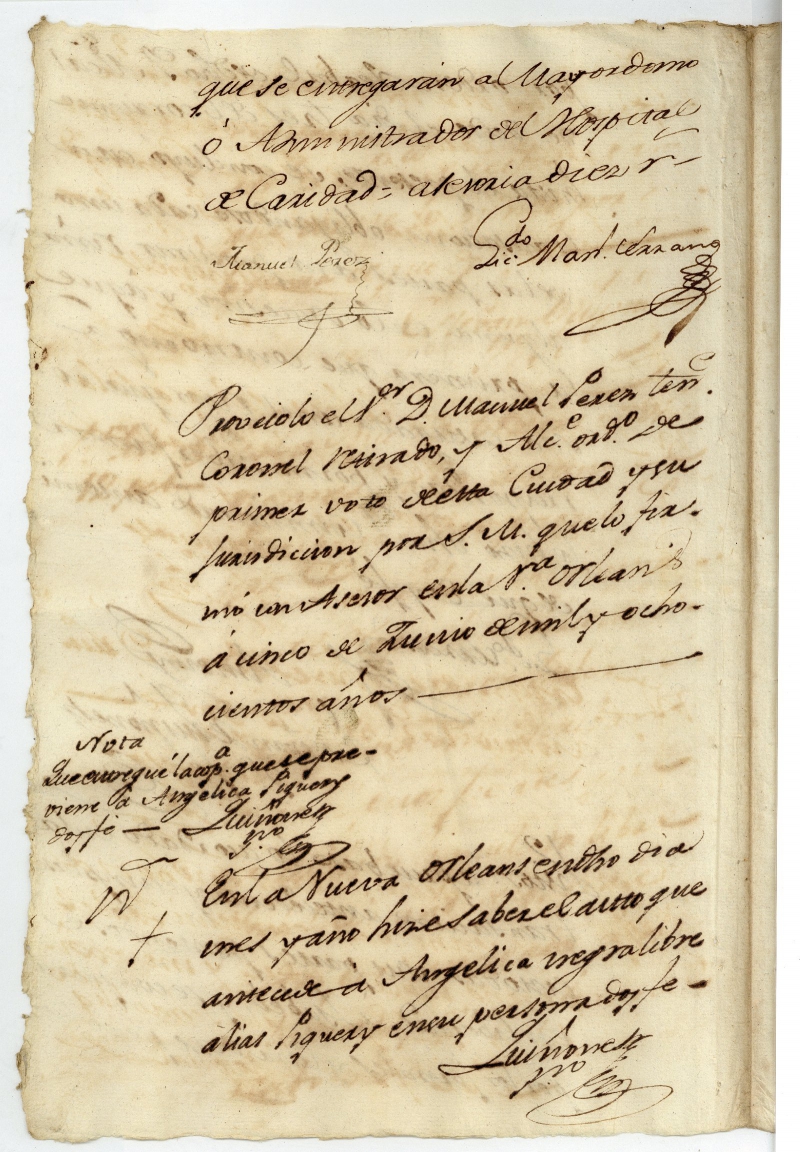 que se entregarán al Mayordomo
ó Administrador del Hospital
de Caridad = asesoria diez r.s
Manuel Perez
Lic.do Man.l Serrano
Proveiolo el S.or D. Manuel Perez ten.e
Coronel retirado, y Alc.e ord.o de
primer voto de esta Ciudad y su
Jurisdicion por S. M. que lo fir-
mó con Asesor en la N.a Orleans
á cinco de Junio de mil y ocho-
cientos años
Nota
Que entregué la cop.a que se pre-
viene á Angelica Piquery
doy fe — Quiñones
s.no
En la Nueva Orleans en dho dia
mes y año hize saber el autto que
antecede á Angelica negra libre
alias Piquery en su persona doy fe -
Quiñones
s.no